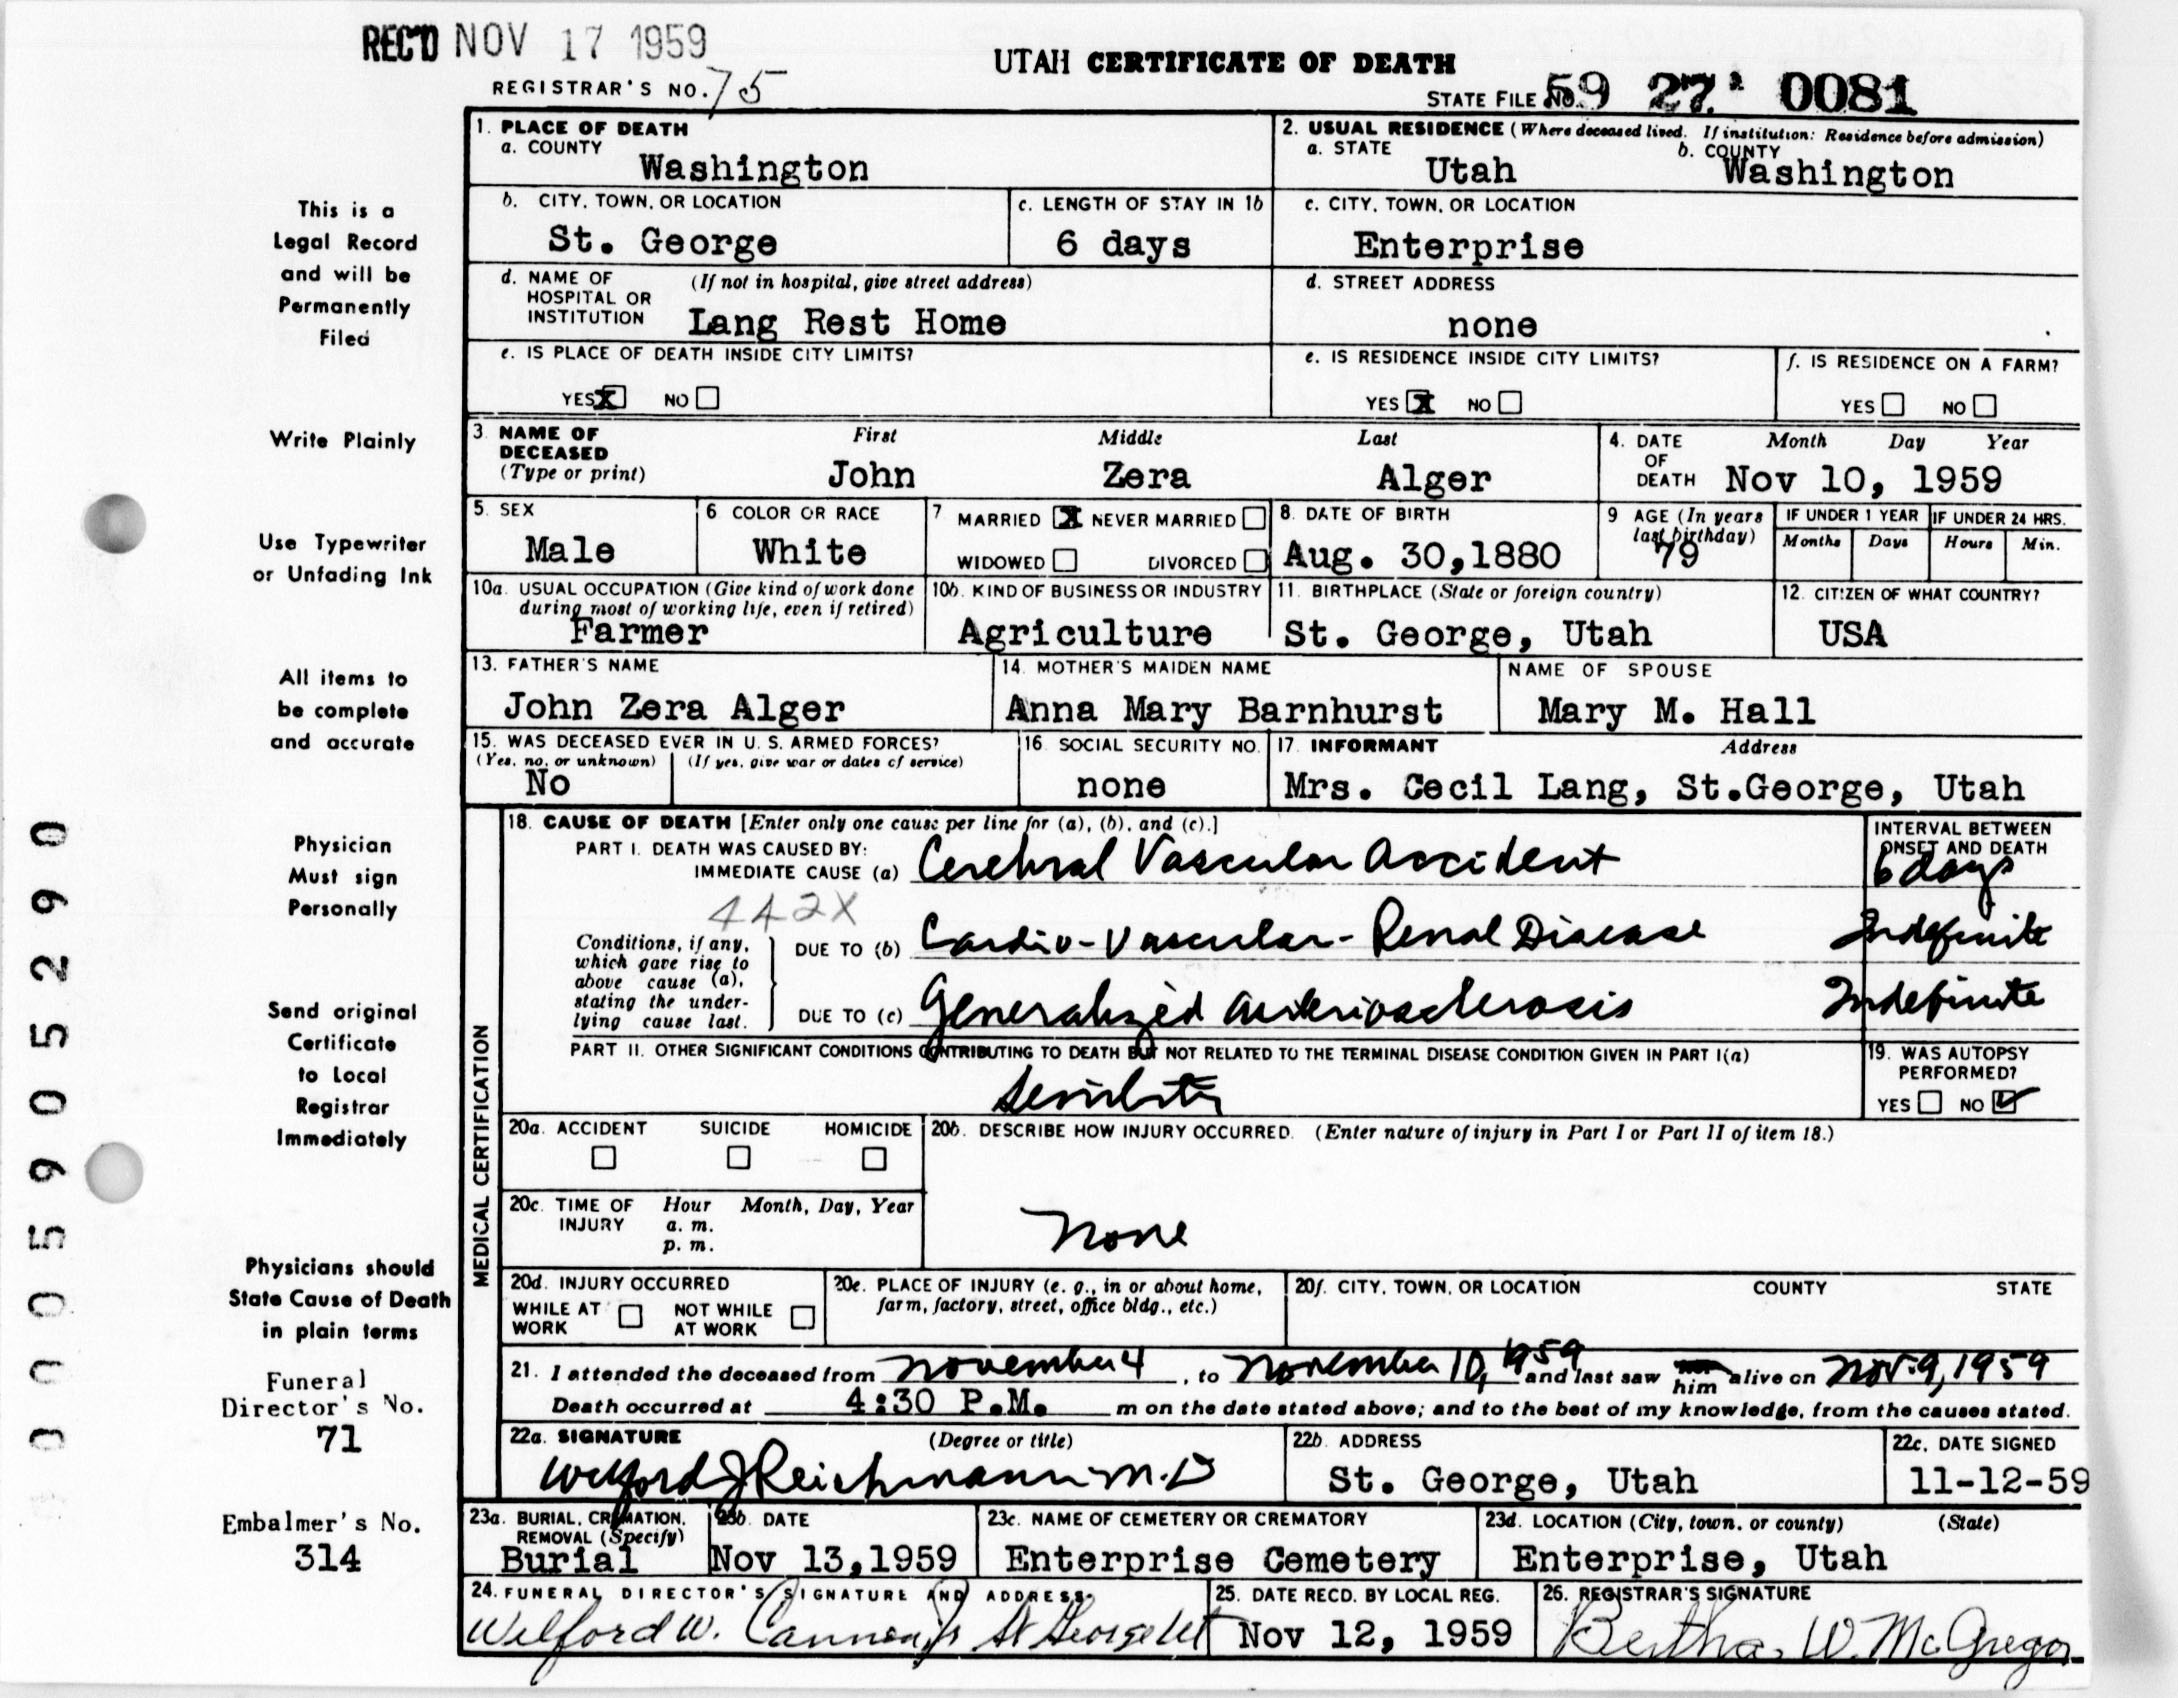 REC'D NOV 17 1959
UTAH CERTIFICATE OF DEATH
REGISTRAR'S NO. 75
STATE FILE NO. 59 27 0081
1. PLACE OF DEATH
a. COUNTY
Washington
2. USUAL RESIDENCE (Where deceased lived. If institution: Residence before admission)
a. STATE b. COUNTY
Utah Washington
b. CITY, TOWN, OR LOCATION
St. George
c. LENGTH OF STAY IN 1b
6 days
c. CITY, TOWN, OR LOCATION
Enterprise
d. NAME OF HOSPITAL OR INSTITUTION (If not in hospital, give street address)
Lang Rest Home
d. STREET ADDRESS
none
e. IS PLACE OF DEATH INSIDE CITY LIMITS?
YES X NO
e. IS RESIDENCE INSIDE CITY LIMITS?
YES X NO
f. IS RESIDENCE ON A FARM?
YES NO
3. NAME OF DECEASED (Type or print)
First Middle Last
John Zera Alger
4. DATE OF DEATH
Month Day Year
Nov 10, 1959
5. SEX
Male
6 COLOR OR RACE
White
7 MARRIED X NEVER MARRIED
WIDOWED DIVORCED
8. DATE OF BIRTH
Aug. 30,1880
9 AGE (In years last birthday)
79
IF UNDER 1 YEAR
Months Days
IF UNDER 24 HRS.
Hours Min.
10a. USUAL OCCUPATION (Give kind of work done during most of working life, even if retired)
Farmer
10b. KIND OF BUSINESS OR INDUSTRY
Agriculture
11. BIRTHPLACE (State or foreign country)
St. George, Utah
12. CITIZEN OF WHAT COUNTRY?
USA
13. FATHER'S NAME
John Zera Alger
14. MOTHER'S MAIDEN NAME
Anna Mary Barnhurst
NAME OF SPOUSE
Mary M. Hall
15. WAS DECEASED EVER IN U. S. ARMED FORCES?
(Yes, no, or unknown) (If yes, give war or dates of service)
No
16. SOCIAL SECURITY NO.
none
17. INFORMANT Address
Mrs. Cecil Lang, St.George, Utah
MEDICAL CERTIFICATION
18. CAUSE OF DEATH [Enter only one cause per line for (a), (b), and (c).]
PART I. DEATH WAS CAUSED BY:
IMMEDIATE CAUSE (a) Cerebral Vascular Accident
INTERVAL BETWEEN ONSET AND DEATH
6 days
442X
Conditions, if any, which gave rise to above cause (a), stating the underlying cause last.
DUE TO (b) Cardio-Vascular-Renal Disease Indefinite
DUE TO (c) Generalized arteriosclerosis Indefinite
PART II. OTHER SIGNIFICANT CONDITIONS CONTRIBUTING TO DEATH BUT NOT RELATED TO THE TERMINAL DISEASE CONDITION GIVEN IN PART I(a)
Senility
19. WAS AUTOPSY PERFORMED?
YES NO ✓
20a. ACCIDENT SUICIDE HOMICIDE
20b. DESCRIBE HOW INJURY OCCURRED. (Enter nature of injury in Part I or Part II of item 18.)
None
20c. TIME OF INJURY Hour Month, Day, Year
a. m.
p. m.
20d. INJURY OCCURRED
WHILE AT WORK NOT WHILE AT WORK
20e. PLACE OF INJURY (e. g., in or about home, farm, factory, street, office bldg., etc.)
20f. CITY, TOWN, OR LOCATION COUNTY STATE
21. I attended the deceased from November 4, to November 10, 1959 and last saw him alive on Nov. 9, 1959
Death occurred at 4:30 P.M. m on the date stated above; and to the best of my knowledge, from the causes stated.
22a. SIGNATURE (Degree or title)
Wilford J Reichmann M.D
22b. ADDRESS
St. George, Utah
22c. DATE SIGNED
11-12-59
23a. BURIAL, CREMATION, REMOVAL (Specify)
Burial
23b. DATE
Nov 13,1959
23c. NAME OF CEMETERY OR CREMATORY
Enterprise Cemetery
23d. LOCATION (City, town, or county) (State)
Enterprise, Utah
24. FUNERAL DIRECTOR'S SIGNATURE AND ADDRESS
Wilford W. Cannon Jr St George Ut
25. DATE RECD. BY LOCAL REG.
Nov 12, 1959
26. REGISTRAR'S SIGNATURE
Bertha W. McGregor
This is a
Legal Record
and will be
Permanently
Filed
Write Plainly
Use Typewriter
or Unfading Ink
All items to
be complete
and accurate
Physician
Must sign
Personally
Send original
Certificate
to Local
Registrar
Immediately
Physicians should
State Cause of Death
in plain terms
Funeral
Director's No.
71
Embalmer's No.
314
0005905290